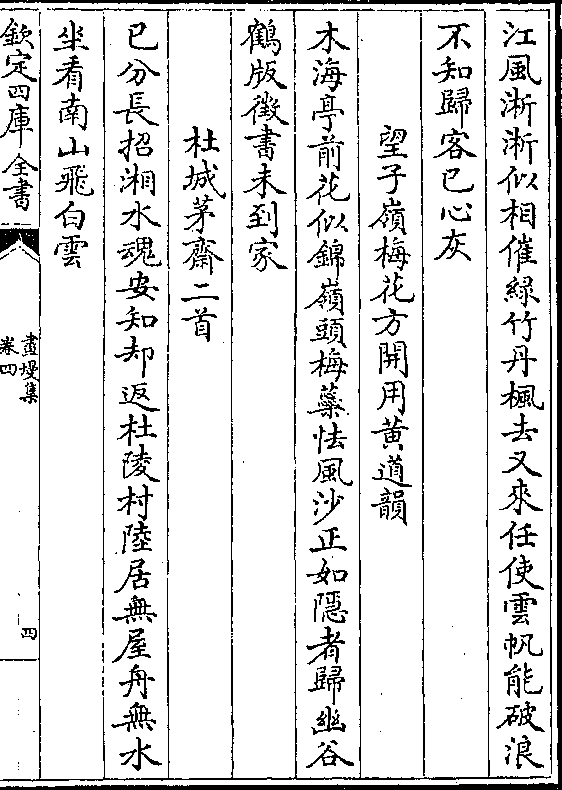 江風淅淅似相催綠竹丹楓去又來任使雲帆能破浪
不知歸客已心灰
望子嶺梅花方開用黄道韻
木海亭前花似錦嶺頭梅蘂怯風沙正如隱者歸幽谷
鶴版徴書未到家
杜城茅齋二首
已分長招湘水魂安知却返杜陵村陸居無屋舟無水
坐看南山飛白雲
欽定四庫全書
畫墁集
卷四
四